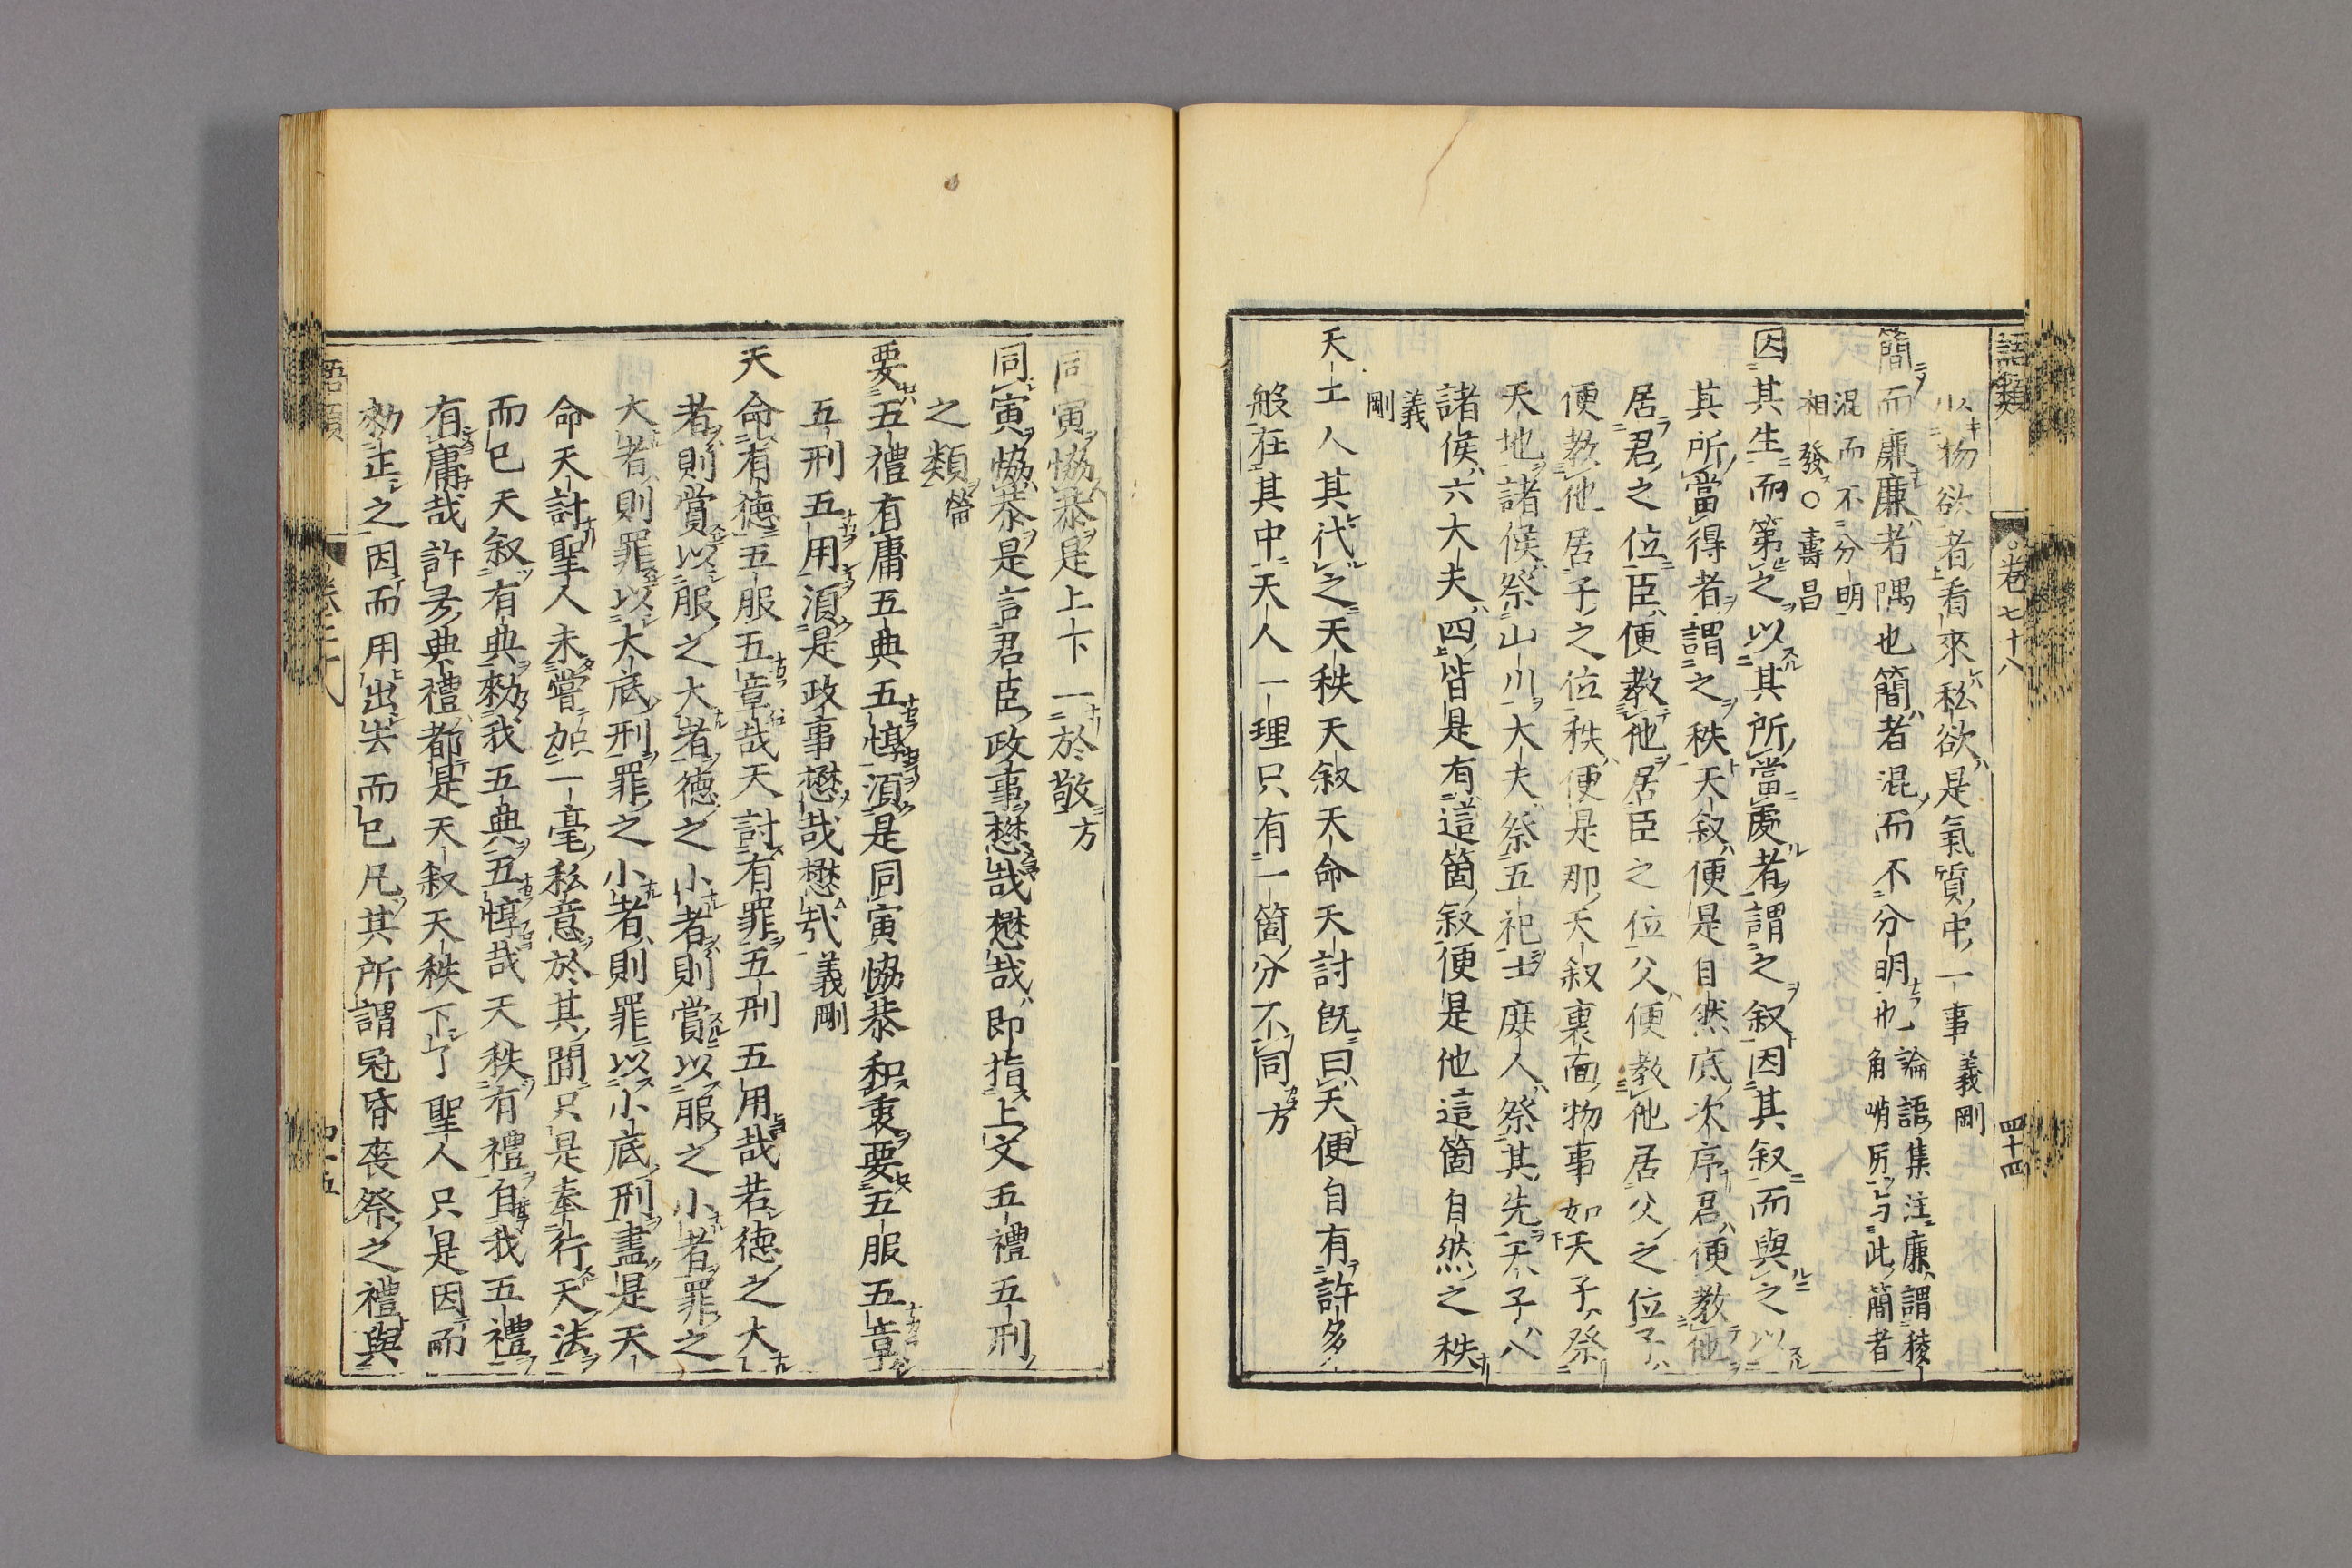 語類
卷七十八
四十四
少物欲者看來私欲是氣質中一事義剛
簡而廉廉者隅也簡者混而不分明也論語集注廉謂稜
角峭厉与此簡者
混而不分明
相發○壽昌
因其生而第之以其所當處者謂之叙因其叙而與之以
其所當得者謂之秩天叙便是自然底次序君便教他
居君之位臣便教他居臣之位父便教他居父之位子
便教他居子之位秩便是那天叙裏面物事如天子祭
天地諸侯祭山川大夫祭五祀士庶人祭其先天子八
諸侯六大夫四皆是有這箇叙便是他這箇自然之秩
義
剛
天工人其代之天秩天叙天命天討既曰天便自有許多
般在其中天人一理只有一箇分不同方
同寅協恭是上下一於敬方
同寅協恭是言君臣政事懋哉懋哉即指上文五禮五刑
之類
要五禮有庸五典五惇須是同寅協恭和衷要五服五章
五刑五用須是政事懋哉懋哉義剛
天命有德五服五章哉天討有罪五刑五用哉若德之大
者則賞以服之大者德之小者則賞以服之小者罪之
大者則罪以大底刑罪之小者則罪以小底刑盡是天
命天討聖人未嘗加一毫私意於其間只是奉行天法
而已天叙有典勑我五典五惇哉天秩有禮自我五禮
有庸哉許多典禮都是天叙天秩下了聖人只是因而
勑正之因而用出去而已凡其所謂冠昏喪祭之禮與
語類